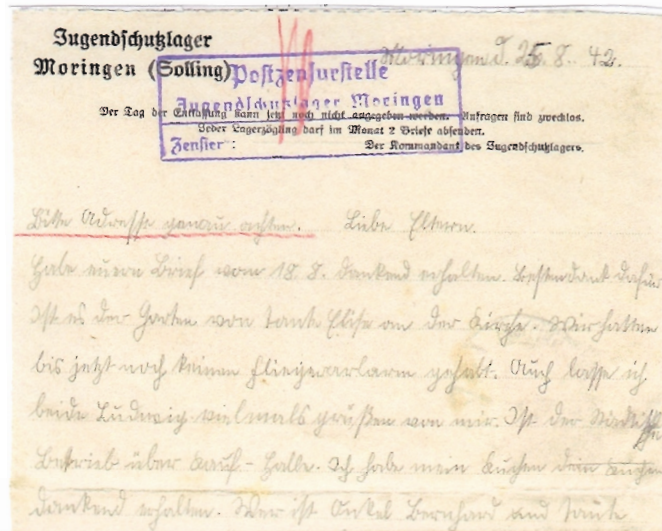 Jugendschutzlager
Moringen (Solling)
Postzensurstelle
Jugendschutzlager Moringen
Zensier :
Moringen d. 25. 8. 42.
Der Tag der Entlassung kann jetzt noch nicht angegeben werden. Anfragen sind zwecklos.
Jeder Lagerzögling darf im Monat 2 Briefe absenden.
Der Kommandant des Jugendschutzlagers.
Bitte Adresse genau achten. Liebe Eltern.
Habe euern Brief vom 18. 8. dankend erhalten. Bestendank dafür
Ist es der Garten von Tante Elise an der Kirche. Wir hatten
bis jetzt noch keinen Fliegeralarm gehabt. Auch lasse ich
beide Ludwig vielmals grüßen von mir. Ist der
Betrieb über Kauf-Halle. Ich habe mein Kuchen
dankend erhalten. Wer ist Onkel Bernhard und Tante